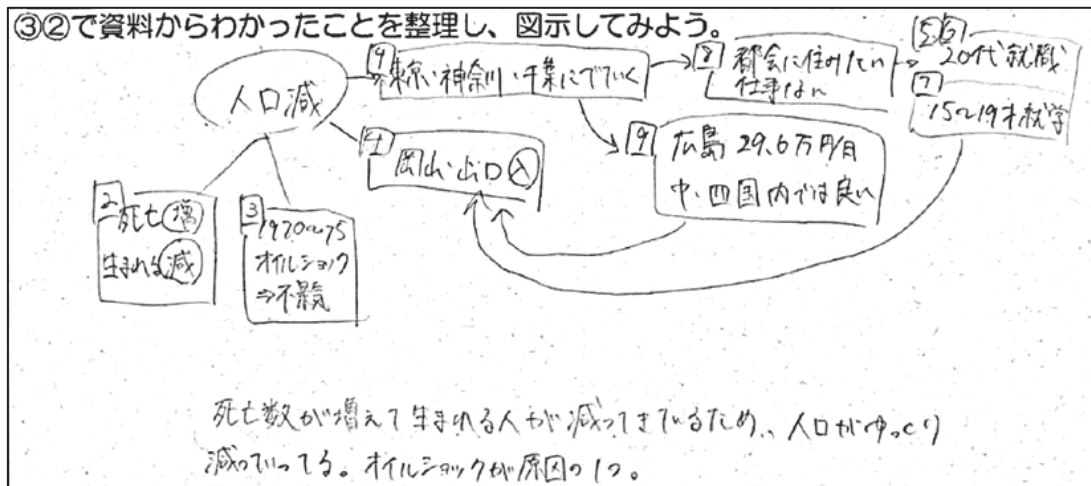 ③②で資料からわかったことを整理し、図示してみよう。
人口減
4
東京・神奈川・千葉にでていく
8
都会に住みたい
仕事
5 6
20代就職
7
15〜19才就学
4
岡山・山口 入
9
広島 29.6万円/月
中・四国内では良い
2
死亡 増
生まれる 減
3
1970〜75
オイルショック
⇒不景気
死亡数が増えて生まれる人が減ってきているため、人口がゆっくり
減っていってる。オイルショックが原因の1つ。